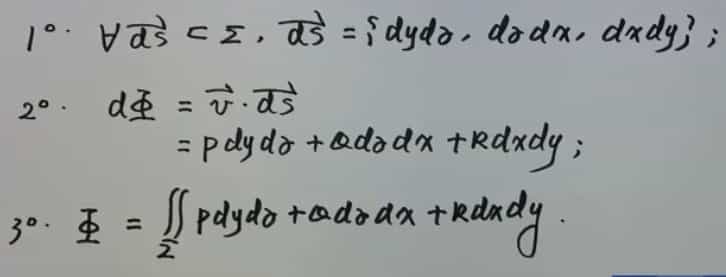 1°. ∀ds⃗ ⊂ Σ, ds⃗ = {dydz, dzdx, dxdy};
2°. dΦ = v⃗·ds⃗
= Pdydz + Qdzdx + Rdxdy;
3°. Φ = ∬_Σ Pdydz + Qdzdx + Rdxdy.